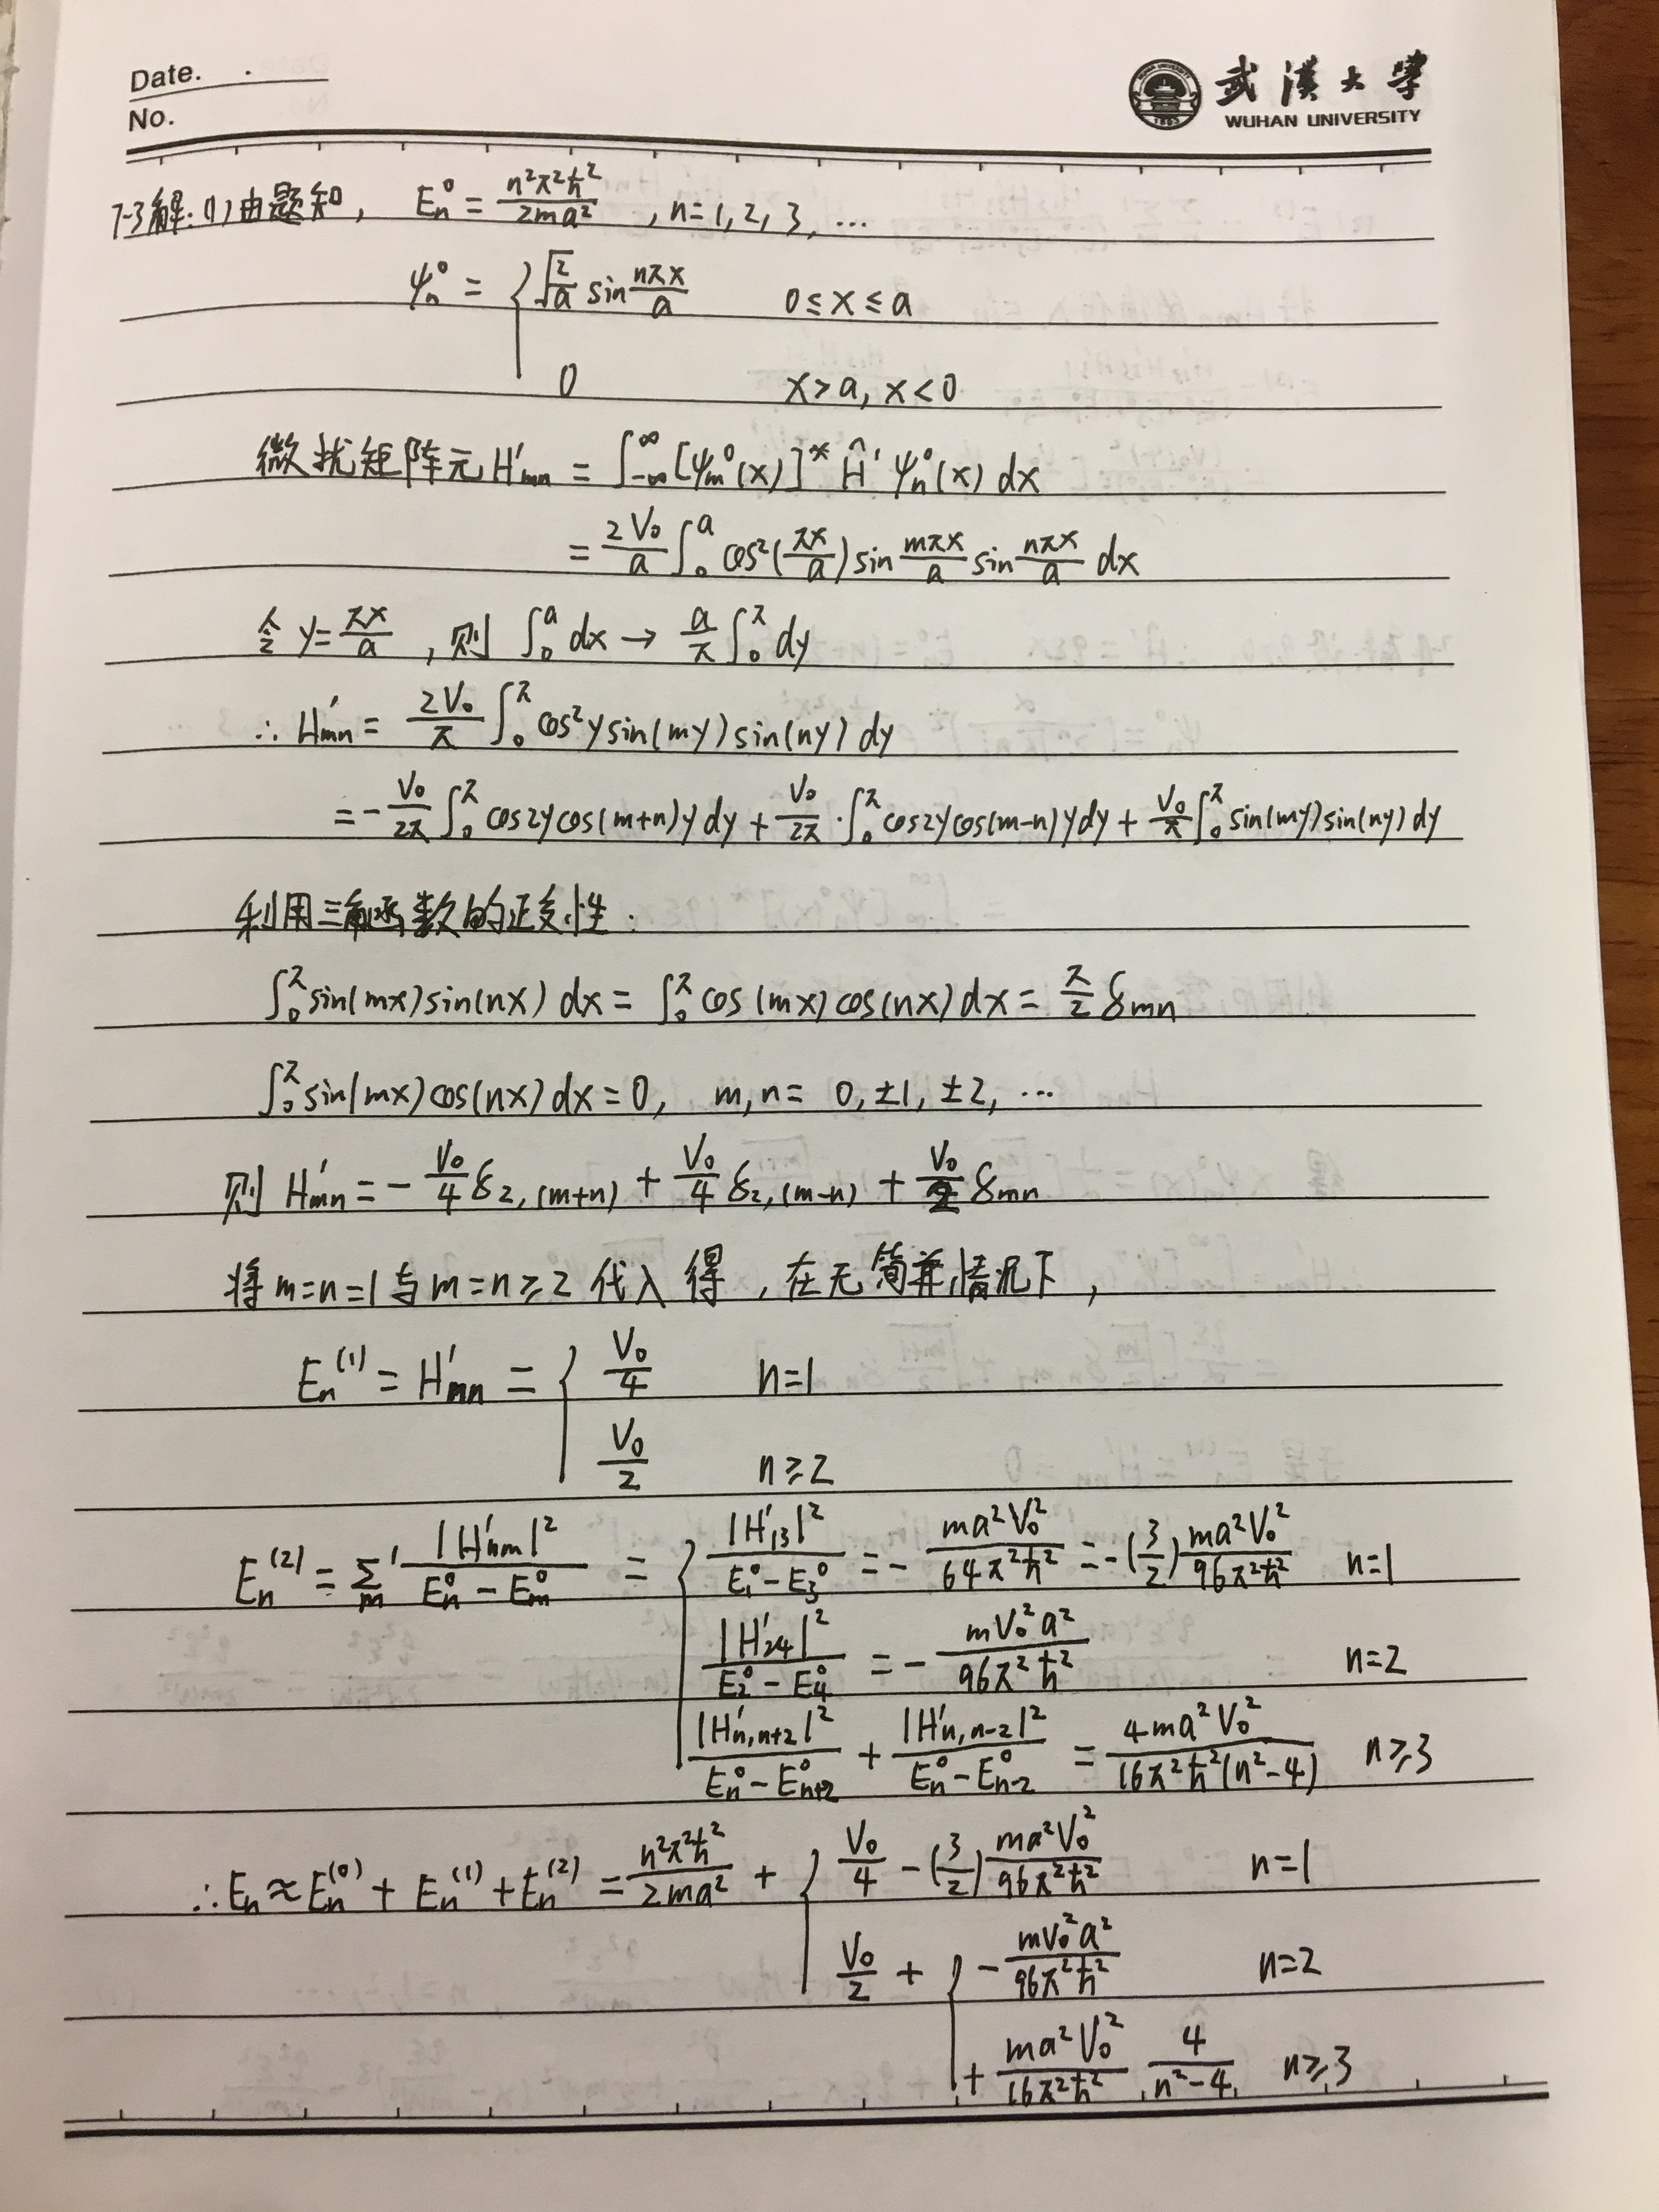 Date. .
No.
武漢大學
WUHAN UNIVERSITY
7-3解:(1)由题知, Eₙ⁰ = n²π²ħ² / 2ma² , n=1, 2, 3, …
ψₙ⁰ = { √(2/a) sin(nπx/a)  0≤x≤a
0  x>a, x<0
微扰矩阵元H'mn = ∫_{-∞}^{∞} [ψm⁰(x)]* Ĥ' ψn⁰(x) dx
= (2V₀/a) ∫₀^a cos²(πx/a) sin(mπx/a) sin(nπx/a) dx
令 y = πx/a , 则 ∫₀^a dx → (a/π) ∫₀^π dy
∴ H'mn = (2V₀/π) ∫₀^π cos²y sin(my) sin(ny) dy
= -(V₀/2π) ∫₀^π cos2y cos(m+n)y dy + (V₀/2π)·∫₀^π cos2y cos(m-n)y dy + (V₀/π) ∫₀^π sin(my) sin(ny) dy
利用三角函数的正交性:
∫₀^π sin(mx) sin(nx) dx = ∫₀^π cos(mx) cos(nx) dx = (π/2) δmn
∫₀^π sin(mx) cos(nx) dx = 0, m, n = 0, ±1, ±2, …
则 H'mn = -(V₀/4) δ₂,(m+n) + (V₀/4) δ₂,(m-n) + (V₀/2) δmn
将 m=n=1 与 m=n≥2 代入得, 在无简并情况下,
Eₙ⁽¹⁾ = H'mn = { V₀/4  n=1
V₀/2  n≥2
Eₙ⁽²⁾ = Σ'm |H'nm|² / (Eₙ⁰ - Em⁰) = { |H'₁₃|² / (E₁⁰ - E₃⁰) = - ma²V₀² / 64π²ħ² = -(3/2) ma²V₀² / 96π²ħ²  n=1
|H'₂₄|² / (E₂⁰ - E₄⁰) = - mV₀²a² / 96π²ħ²  n=2
|H'n,n+2|² / (Eₙ⁰ - E⁰n+2) + |H'n,n-2|² / (Eₙ⁰ - E⁰n-2) = 4ma²V₀² / 16π²ħ²(n²-4)  n≥3
∴ Eₙ ≈ Eₙ⁽⁰⁾ + Eₙ⁽¹⁾ + Eₙ⁽²⁾ = n²π²ħ² / 2ma² + { V₀/4 - (3/2) ma²V₀² / 96π²ħ²  n=1
V₀/2 + { - mV₀²a² / 96π²ħ²  n=2
+ ma²V₀² / 16π²ħ² · 4 / (n²-4)  n≥3